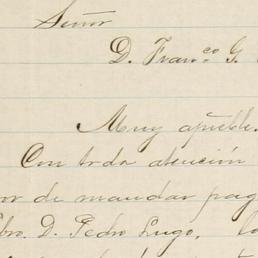 Señor
D. Franco G.
Muy apreble.
Con toda atención
or de mandar pag
bro. D. Pedro Lugo,